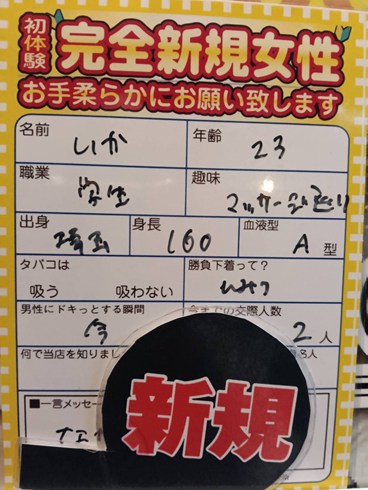 初体験
完全新規女性
お手柔らかにお願い致します
名前 いか 年齢 23
職業 学生 趣味 マッサージ巡り
出身 埼玉 身長 160 血液型 A 型
タバコは 勝負下着って?
吸う 吸わない
男性にドキっとする瞬間 今までの交際人数
今 2 人
何で当店を知りまし 名人
■一言メッセー
新規